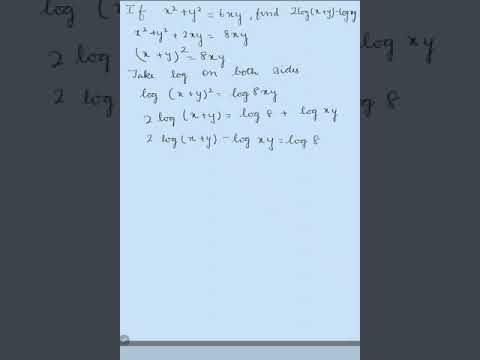 If x² + y² = 6xy, find 2log(x+y)-logxy
x² + y² + 2xy = 8xy
(x + y)² = 8xy
Take log on both sides
log (x + y)² = log 8xy
2 log (x + y) = log 8 + log xy
2 log (x + y) - log xy = log 8